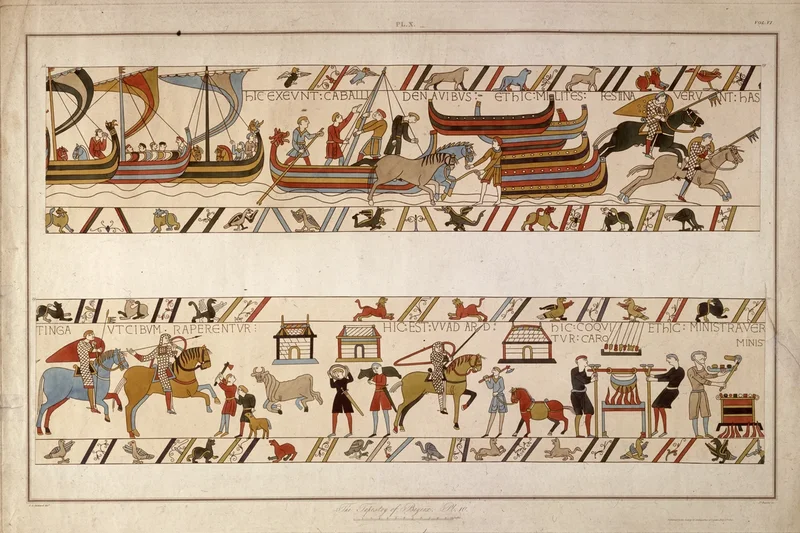 Pl. X.
VOL. VI
hIC EXEVNT: CABALLI DENAVIBVS:- ET hIC: MILITES: FESTINA VERV NT: hAS
TINGA VT CIBVM. RAPERENTVR: HIC. EST: VVAD ARD: hIC: COQVI ET hIC: MINISTRAVER
TVR: CARO MINIS
The Tapestry of Bayeux. Pl. 10.